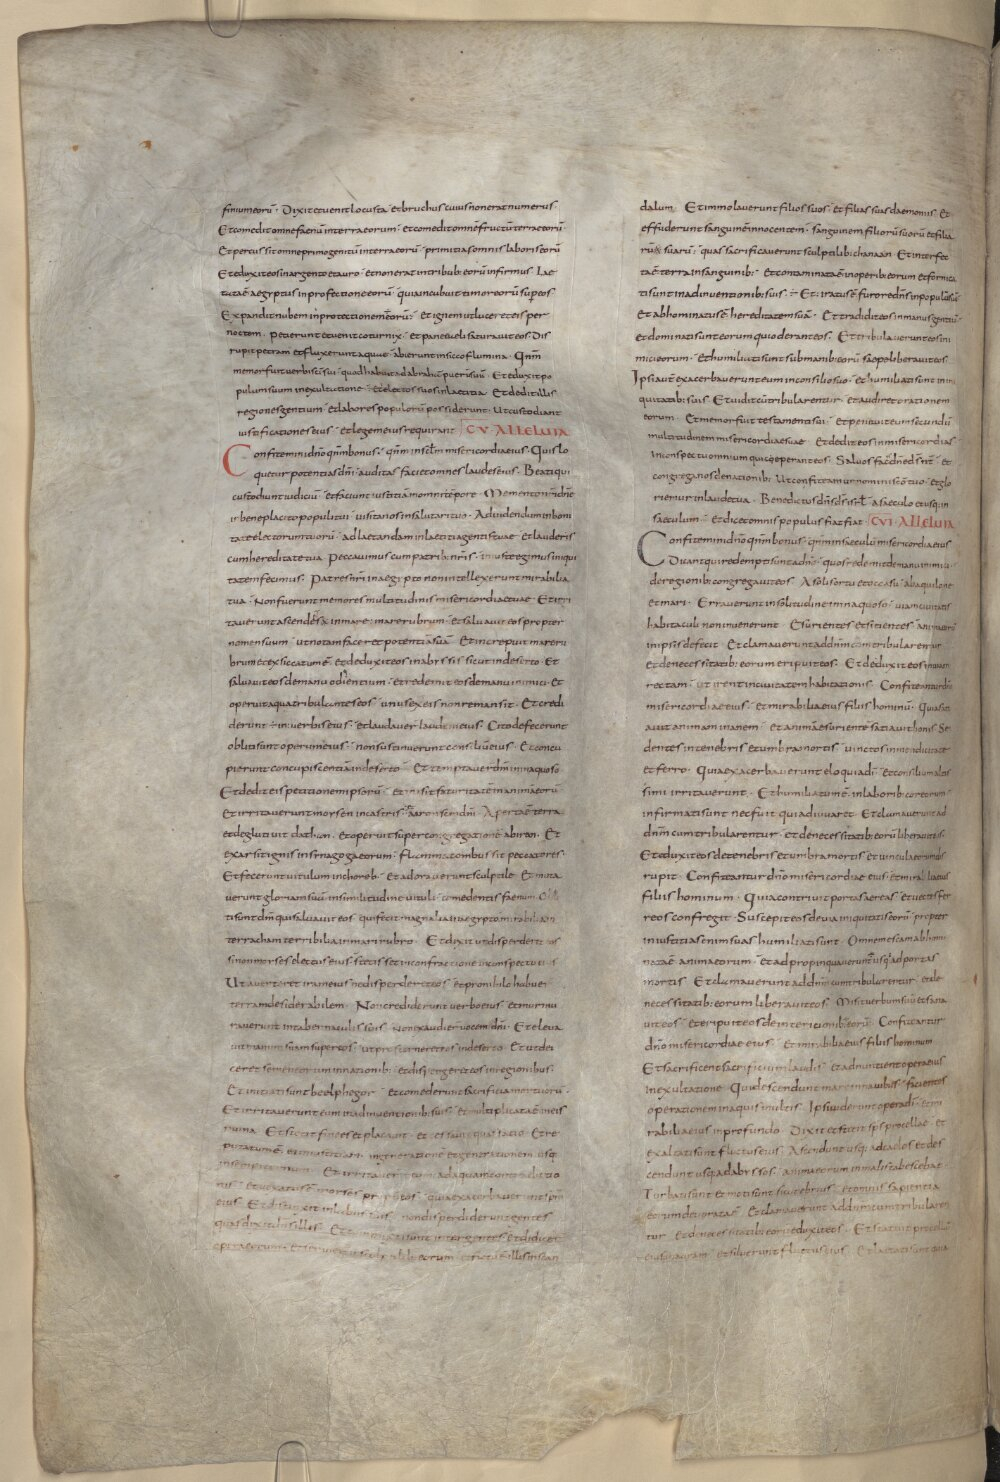 finium eorū · Dixit et uenit locusta et bruchus cuius non erat numerus ·
Et comedit omne faenū in terra eorum · et comedit omnē fructū terrae eorū
Et percussit omne primogenitū in terra eorū · primitias omnis laboris eorū
Et eduxit eos in argento et auro · et non erat in tribub: eorū infirmus · Lae
tata ē aegyptus in profectione eorū · quia incubuit timor eorū super eos ·
Expandit nubem in protectionem eorū · et ignem ut luceret eis per
noctem · Petierunt et uenit coturnix · et pane caeli saturauit eos · Dis
rupit petram et fluxerunt aquae · abierunt in sicco flumina · Qnm
memor fuit uerbi sc̄i sui · quod habuit ad abraham puerū suū · Et eduxit po
pulum suum in exultatione · et electos suos in laetitia · Et dedit illis
regiones gentium · et labores populorū possiderunt · Ut custodiant
iustificationes eius · et legem eius requirant · CV · ALLELUIA
Confitemini dn̄o qnm bonus · qnm in saeculum misericordia eius · Quis lo
quetur potentias dn̄i · auditas faciet omnes laudes eius · Beati qui
custodiunt iudiciū · et faciunt iustitiā in omni tēpore · Memento nr̄i dn̄e
in beneplacito populi tui · uisita nos in salutari tuo · Ad uidendum in boni
tate electorum tuorū · ad laetandum in laetitia gentis tuae · et lauderis
cum hereditate tua · Peccauimus cum patrib: nr̄is · iniuste egimus iniqui
tatem fecimus · Patres nr̄i in aegypto non intellexerunt mirabilia
tua · Non fuerunt memores multitudinis misericordiae tuae · Et irri
tauerunt ascendētes in mare · mare rubrum · et saluauit eos propter
nomen suum · ut notam faceret potentiā suā · Et increpuit mare ru
brum et exsiccatum ē · et deduxit eos in abyssis sicut in deserto · Et
saluauit eos de manu odientium · et redemit eos de manu inimici · Et
operuit aqua tribulantes eos · unus ex eis non remansit · Et credi
derunt in uerbis eius · et laudauer laudem eius · Cito defecerunt
obliti sunt operum eius · non sustinuerunt consiliū eius · Et concu
pierunt concupiscentiā in deserto · Et temptauer dm̄ in inaquoso ·
Et dedit eis petitionem ipsorū · et misit saturitatē in animas eorū
Et irritauerunt moysen in castris · aaron scm̄ dn̄i · Aperta ē terra
et deglutiuit dathan · et operuit super congregationē abiron · Et
exarsit ignis in synagoga eorum · flamma combussit peccatores ·
Et fecerunt uitulum in choreb · Et adorauerunt sculptile · Et muta
uerunt gloriam suā · in similitudine uituli comedentis faenum · Obli
ti sunt dm̄ qui saluauit eos · qui fecit magnalia in aegypto mirabilia in
terra cham terribilia in mari rubro · Et dixit ut disperderet eos
si non moyses electus eius · stetisset in confractione in conspectu eius
Ut auerteret iram eius ne disperderet eos · et pro nihilo habuer
terram desiderabilem · Non crediderunt uerbo eius · et murmu
rauerunt in tabernaculis suis · non exaudier uocem dn̄i · Et eleua
uit manum suam super eos · ut prosterneret eos in deserto · Et ut dei
ceret semen eorum in nationib: · et dispergeret eos in regionibus ·
Et initiati sunt beelphegor · et comederunt sacrificia mortuorū ·
Et irritauerunt eum in adinuentionib: suis · et multiplicata ē in eis
ruina · Et stetit finees et placauit · et cessauit quassatio · Et re
putatum ē ei in iustitiam · in generatione et generationem usq
in sempiternum · Et irritauer eum ad aquam contradictio
nis · et uexatus ē moyses propter eos · quia exacerbauerunt spm̄
eius · Et distinxit in labiis suis · non disperdiderunt gentes
quas dixit dn̄s illis · Et commixti sunt inter gentes et didicer
opera eorum · et seruierunt sculptilib: eorum · et factū ē illis in scan
dalum · Et immolauerunt filios suos · et filias suas daemoniis · Et
effuderunt sanguinem innocentem · sanguinem filiorū suorū et filia
rū suarū : quas sacrificauerunt sculptilib: chanaan · Et interfec
ta ē terra in sanguinib: · et contaminata ē in operib: eorum et fornica
ti sunt in adinuentionib: suis · Et iratus ē furore dn̄s in populū suū
Et abhominatus ē hereditatem suā · Et tradidit eos in manus gentiū
et dominati sunt eorum qui oderant eos · Et tribulauerunt eos ini
mici eorum · et humiliati sunt sub manib: eorū saepe liberauit eos
Ipsi autē exacerbauerunt eum in consilio suo · et humiliati sunt in ini
quitatib: suis · Et uidit cū tribularentur · et audiret orationem
eorum · Et memor fuit testamenti sui · et penituit eum secundū
multitudinem misericordiae suae · Et dedit eos in misericordias
in conspectu omnium qui ceperant eos · Saluos fac dn̄e ds̄ nr̄ · et
congrega nos de nationib: Ut confiteamur nomini sc̄o tuo · et glo
riemur in laude tua · Benedictus dn̄s ds̄ isrl a saeculo et usq: in
saeculum · et dicet omnis populus fiat fiat · CVI · ALLELUIA
Confitemini dn̄o qnm bonus · qnm in saeculū misericordia eius
Dicant qui redempti sunt a dn̄o · quos redemit de manu inimici ·
de regionib: congregauit eos · A solis ortu et occasu · ab aquilone
et mari · Errauerunt in solitudine in inaquoso · uiam ciuitatis
habitaculi non inuenerunt · Esurientes et sitientes · anima eorū
in ipsis defecit · Et clamauerunt ad dnm̄ cum tribularentur
et de necessitatib: eorum eripuit eos · Et deduxit eos in uiam
rectam · ut irent in ciuitatem habitationis · Confiteantur dn̄o
misericordiae eius · et mirabilia eius filiis hominū · Quia sati
auit animam inanem · et animā esurientē satiauit bonis · Se
dentes in tenebris et umbra mortis · uinctos in mendicitate
et ferro · Quia exacerbauerunt eloquia dī · et consilium altis
simi irritauerunt · Et humiliatum ē in laborib: cor eorum
infirmati sunt nec fuit qui adiuuaret · Et clamauerunt ad
dnm̄ cum tribularentur · et de necessitatib: eorū liberauit eos ·
Et eduxit eos de tenebris et umbra mortis · et uincula eorum dis
rupit · Confiteantur dn̄o misericordiae eius · et mirabilia eius
filiis hominum · Quia contriuit portas aereas · et uectes fer
reos confregit · Suscepit eos de uia iniquitatis eorū · propter
iniustitias enim suas humiliati sunt · Omnem escam abhomi
nata ē anima eorum · et adpropinquauerunt usq: ad portas
mortis · Et clamauerunt ad dnm̄ cum tribularentur · et de
necessitatib: eorum liberauit eos · Misit uerbum suū et sana
uit eos · et eripuit eos de interitionib: eorū · Confiteantur
dn̄o misericordiae eius · et mirabilia eius filiis hominum
Et sacrificent sacrificium laudis · et adnuntient opera eius
in exultatione · Qui descendunt mare in nauibus · facientes
operationem in aquis multis · Ipsi uiderunt opera dn̄i · et mi
rabilia eius in profundo · Dixit et stetit sps̄ procellae · et
exaltati sunt fluctus eius · Ascendunt usq: ad caelos et des
cendunt usq: ad abyssos · anima eorum in malis tabescebat ·
Turbati sunt et moti sunt sicut ebrius · et omnis sapientia
eorum deuorata ē · Et clamauerunt ad dnm̄ cum tribularen
tur · et de necessitatib: eorū eduxit eos · Et statuit procellā
eius in auram · et siluerunt fluctus eius · Et laetati sunt quia